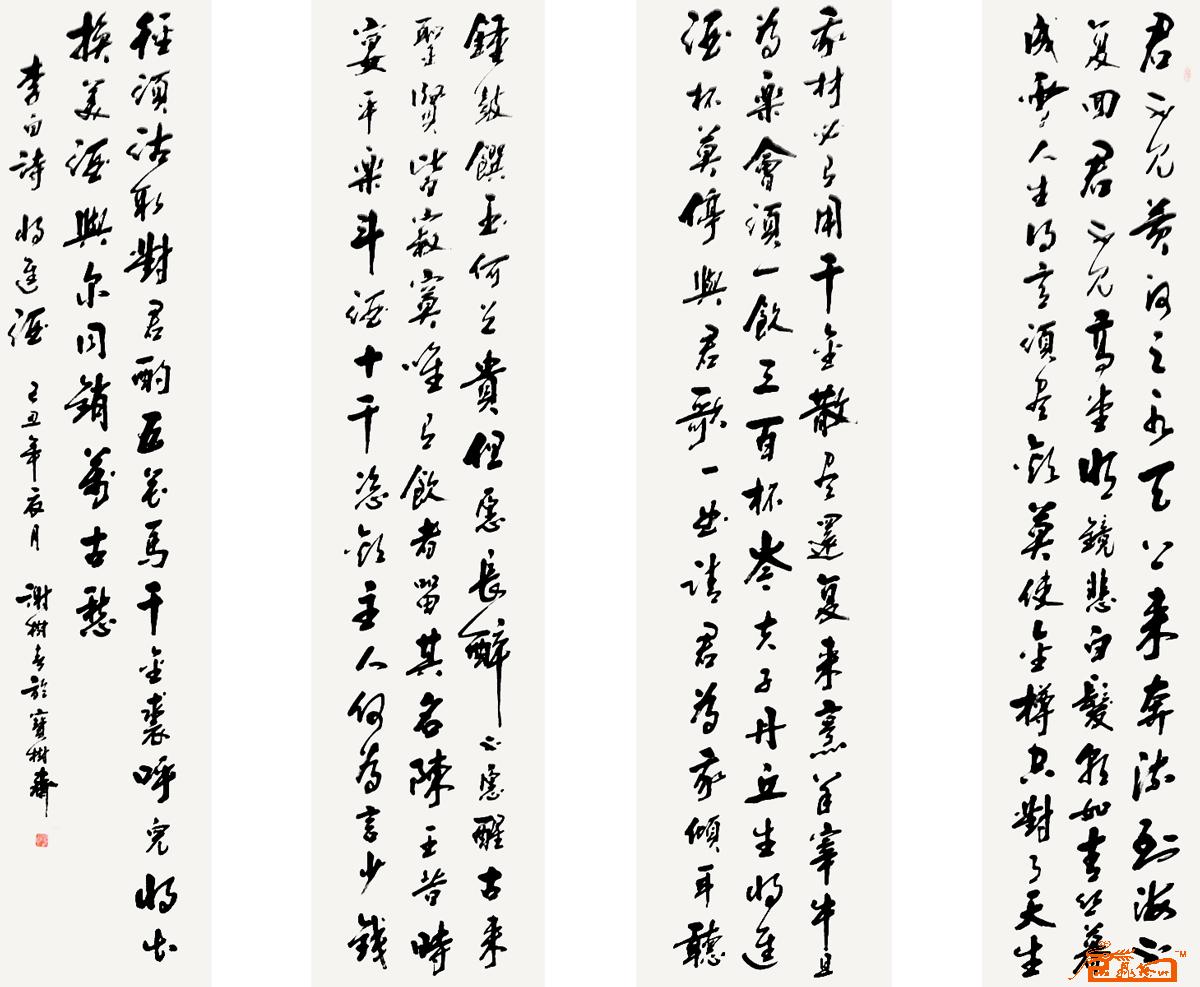 君不见黄河之水天上来奔流到海不
复回君不见高堂明镜悲白髮朝如青丝暮
成雪人生得意須尽欢莫使金樽空對月天生
我材必有用千金散尽還复来烹羊宰牛且
为樂會須一飲三百杯岑夫子丹丘生将進
酒杯莫停與君歌一曲请君为我傾耳聽
鍾鼓饌玉何足貴但愿長醉不愿醒古来
聖賢皆寂寞唯有飲者留其名陳王昔時
宴平樂斗酒十千恣欢主人何为言少錢
徑須沽取對君酌五花馬千金裘呼兒将出
換美酒與尔同銷萬古愁
李白詩 将進酒 己丑年夏月 謝樹於寶樹齋